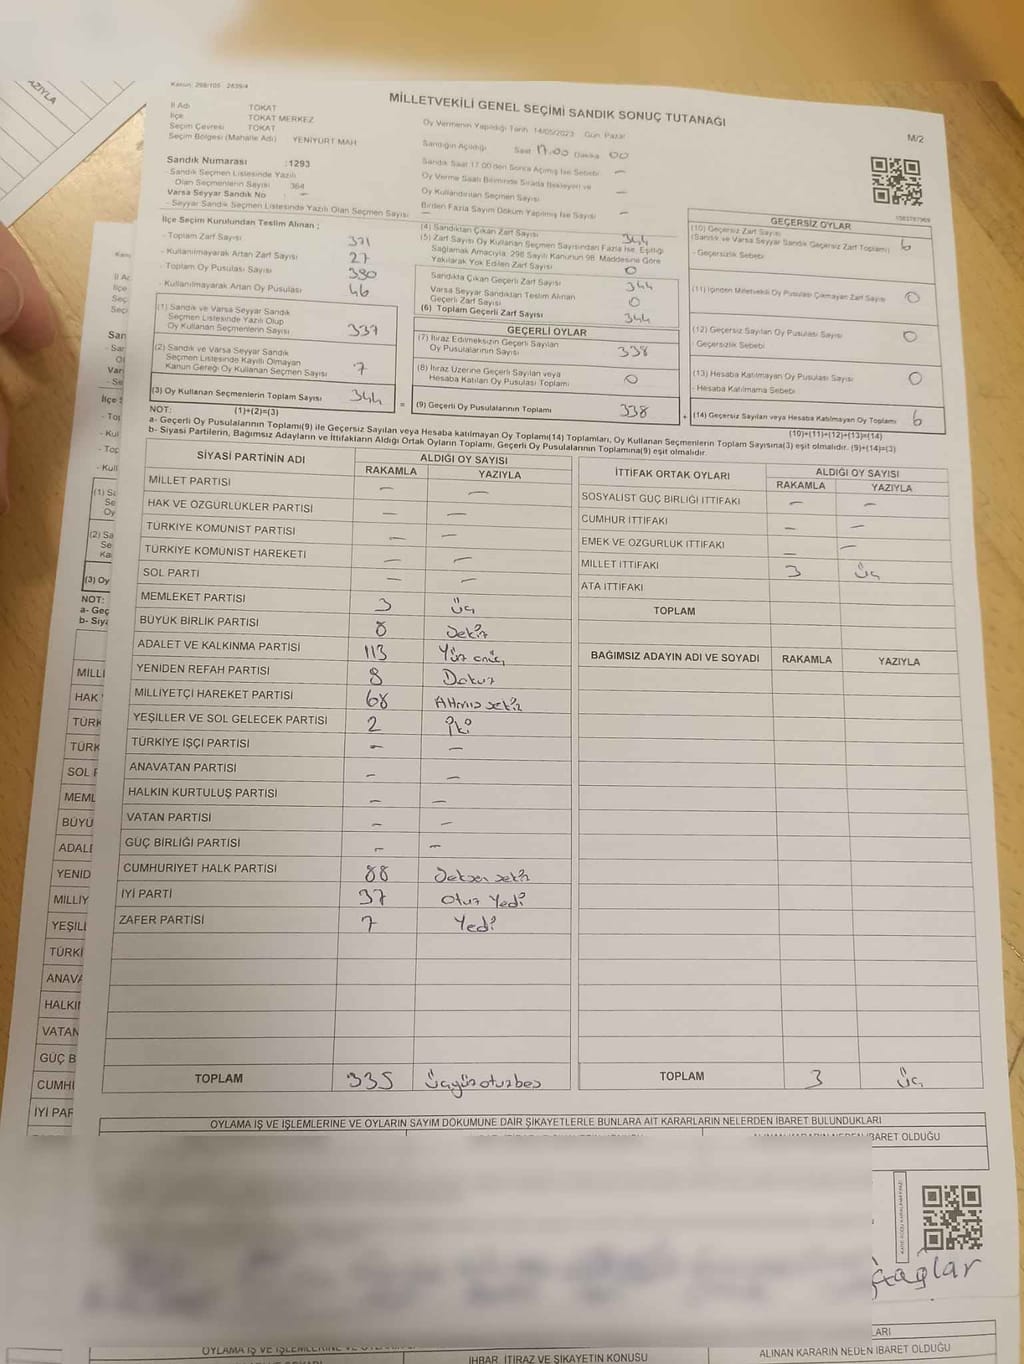 AZIYLA
Kanun: 298/105 2839/4
MİLLETVEKİLİ GENEL SEÇİMİ SANDIK SONUÇ TUTANAĞI
M/2
İl Adı TOKAT
İlçe TOKAT MERKEZ
Seçim Çevresi TOKAT
Seçim Bölgesi (Mahalle Adı) YENİYURT MAH
Sandık Numarası :1293
- Sandık Seçmen Listesinde Yazılı
Olan Seçmenlerin Sayısı 364
Varsa Seyyar Sandık No –
- Seyyar Sandık Seçmen Listesinde Yazılı Olan Seçmen Sayısı –
Oy Vermenin Yapıldığı Tarih 14/05/2023 Gün Pazar
Sandığın Açıldığı Saat 17.00 Dakika 00
Sandık Saat 17.00'den Sonra Açılmış İse Sebebi –
Oy Verme Saati Bitiminde Sırada Bekleyen ve
Oy Kullandırılan Seçmen Sayısı –
Birden Fazla Sayım Döküm Yapılmış İse Sayısı –
İlçe Seçim Kurulundan Teslim Alınan ;
- Toplam Zarf Sayısı 371
- Kullanılmayarak Artan Zarf Sayısı 27
- Toplam Oy Pusulası Sayısı 380
- Kullanılmayarak Artan Oy Pusulası 46
(1) Sandık ve Varsa Seyyar Sandık
Seçmen Listesinde Yazılı Olup
Oy Kullanan Seçmenlerin Sayısı 337
(2) Sandık ve Varsa Seyyar Sandık
Seçmen Listesinde Kayıtlı Olmayan
Kanun Gereği Oy Kullanan Seçmen Sayısı 7
(3) Oy Kullanan Seçmenlerin Toplam Sayısı 344
(1)+(2)=(3)
(4) Sandıktan Çıkan Zarf Sayısı 344
(5) Zarf Sayısı Oy Kullanan Seçmen Sayısından Fazla İse, Eşitliği
Sağlamak Amacıyla, 298 Sayılı Kanunun 98. Maddesine Göre
Yakılarak Yok Edilen Zarf Sayısı 0
Sandıkta Çıkan Geçerli Zarf Sayısı 344
Varsa Seyyar Sandıktan Teslim Alınan
Geçerli Zarf Sayısı 0
(6) Toplam Geçerli Zarf Sayısı 344
GEÇERLİ OYLAR
(7) İtiraz Edilmeksizin Geçerli Sayılan
Oy Pusulalarının Sayısı 338
(8) İtiraz Üzerine Geçerli Sayılan veya
Hesaba Katılan Oy Pusulası Toplamı 0
= (9) Geçerli Oy Pusulalarının Toplamı 338
GEÇERSİZ OYLAR
(10) Geçersiz Zarf Sayısı
(Sandık ve Varsa Seyyar Sandık Geçersiz Zarf Toplamı) 6
- Geçersizlik Sebebi
(11) İçinden Milletvekili Oy Pusulası Çıkmayan Zarf Sayısı 0
(12) Geçersiz Sayılan Oy Pusulası Sayısı 0
- Geçersizlik Sebebi
(13) Hesaba Katılmayan Oy Pusulası Sayısı 0
- Hesaba Katılmama Sebebi
+ (14) Geçersiz Sayılan veya Hesaba Katılmayan Oy Toplamı 6
(10)+(11)+(12)+(13)=(14)
NOT:
a- Geçerli Oy Pusulalarının Toplamı(9) ile Geçersiz Sayılan veya Hesaba Katılmayan Oy Toplamı(14) Toplamları, Oy Kullanan Seçmenlerin Toplam Sayısına(3) eşit olmalıdır. (9)+(14)=(3)
b- Siyasi Partilerin, Bağımsız Adayların ve İttifakların Aldığı Ortak Oyların Toplamı, Geçerli Oy Pusulalarının Toplamına(9) eşit olmalıdır.
SİYASİ PARTİNİN ADI ALDIĞI OY SAYISI
RAKAMLA YAZIYLA
MİLLET PARTİSI – –
HAK VE ÖZGÜRLÜKLER PARTİSI – –
TÜRKİYE KOMÜNİST PARTİSI – –
TÜRKİYE KOMÜNİST HAREKETİ – –
SOL PARTİ – –
MEMLEKET PARTİSI 3 üç
BÜYÜK BİRLİK PARTİSI 8 Sekiz
ADALET VE KALKINMA PARTİSI 113 Yüz onüç
YENİDEN REFAH PARTİSI 9 Dokuz
MİLLİYETÇİ HAREKET PARTİSI 68 Altmış sekiz
YEŞİLLER VE SOL GELECEK PARTİSI 2 iki
TÜRKİYE İŞÇİ PARTİSI – –
ANAVATAN PARTİSI – –
HALKIN KURTULUŞ PARTİSI – –
VATAN PARTİSI – –
GÜÇ BİRLİĞİ PARTİSI – –
CUMHURİYET HALK PARTİSI 88 Seksen sekiz
İYİ PARTİ 37 Otuz Yedi
ZAFER PARTİSI 7 Yedi
TOPLAM 335 üçyüzotuzbeş
İTTİFAK ORTAK OYLARI ALDIĞI OY SAYISI
RAKAMLA YAZIYLA
SOSYALİST GÜÇ BİRLİĞİ İTTİFAKI – –
CUMHUR İTTİFAKI – –
EMEK VE ÖZGÜRLÜK İTTİFAKI – –
MİLLET İTTİFAKI 3 üç
ATA İTTİFAKI
TOPLAM
BAĞIMSIZ ADAYIN ADI VE SOYADI RAKAMLA YAZIYLA
TOPLAM 3 üç
OYLAMA İŞ VE İŞLEMLERİNE VE OYLARIN SAYIM DÖKÜMÜNE DAİR ŞİKAYETLERLE BUNLARA AİT KARARLARIN NELERDEN İBARET BULUNDUKLARI
BARET OLDUĞU
OYLAMA İŞ VE İŞLEMLERİNE
LARI
İHBAR, İTİRAZ VE ŞİKAYETİN KONUSU
ALINAN KARARIN NEDEN İBARET OLDUĞU